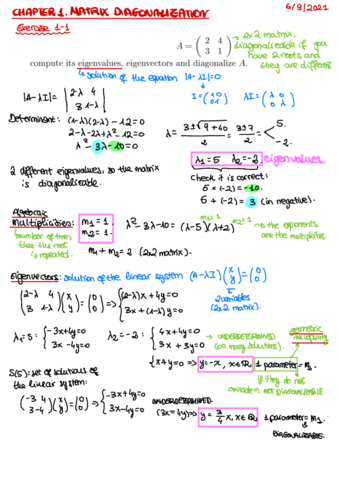 CHAPTER 1. MATRIX DIAGONALIZATION 6/9/2021
Exercise 1-1
A = ( 2 4 3 1 ) → 2x2 matrix,
diagonalisable if you
have 2 roots and
they are different
compute its eigenvalues, eigenvectors and diagonalize A.
↳ solution of the equation |A-λI|=0
I = ( 1 0 0 1 ) λI = ( λ 0 0 λ )
|A-λI| = | 2-λ 4 3 1-λ |
Determinant: (1-λ)(2-λ)-12=0
2-λ-2λ+λ²-12=0
λ²-3λ-10=0
λ = 3±√9+40 / 2 = 3±7 / 2 = < 5. -2.
λ1=5 λ2=-2 eigenvalues.
2 different eigenvalues, so the matrix
is diagonalisable.
Check it is correct:
5 × (-2) = -10.
5 + (-2) = 3 (in negative).
Algebraic
multiplicities: m1=1. m2=1.
λ²-3λ-10 = (λ-5)(λ+2) m1=1 m2=1 → the exponents
are the multiplicities.
number of times
that the root
is repeated.
m1+m2=2 (2x2 matrix).
Eigenvectors: solution of the linear system (A-λI)(x y) = (0 0)
2 variables
(2x2 matrix)
( 2-λ 4 3 1-λ )( x y ) = ( 0 0 ) ⇒ { (2-λ)x+4y=0 3x+(1-λ)y=0
λ1=5: { -3x+4y=0 3x-4y=0
λ2=-2: { 4x+4y=0 3x+3y=0 → UNDERDETERMINED
(so many solutions).
geometric
multiplicity
{ x+y=0 ⇒ y=-x, x∈ℝ 1 parameter = m2
if they do not
coincide → not DIAGONALIZABLE
S(5): set of solutions of
the linear system:
( -3 4 3 -4 )( x y ) = ( 0 0 ) ⇒ { -3x+4y=0 3x-4y=0 UNDERDETERMINED
(3x=4y) ⇒ y = 3/4 x, x∈ℝ 1 parameter = m1.
DIAGONALIZABLE